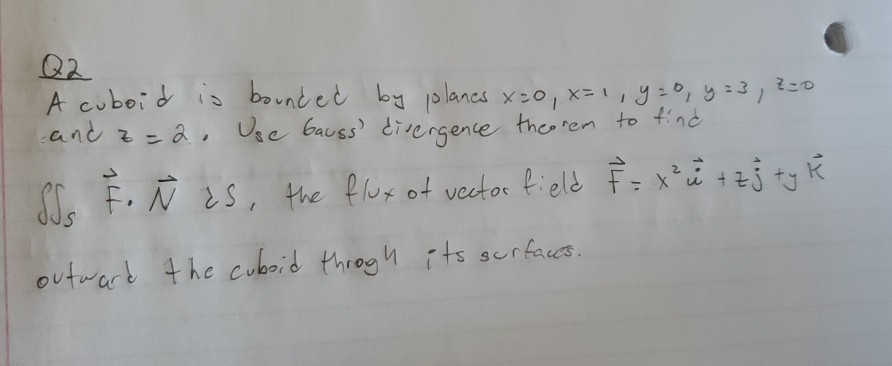 Q2
A cuboid is bounded by planes x=0, x=1, y=0, y=3, z=0
and z=2. Use Gauss' divergence theorem to find
∬ₛ F⃗. N⃗ dS, the flux of vector field F⃗ = x² i⃗ + z j⃗ + y k⃗
outward the cuboid throgh its surfaces.